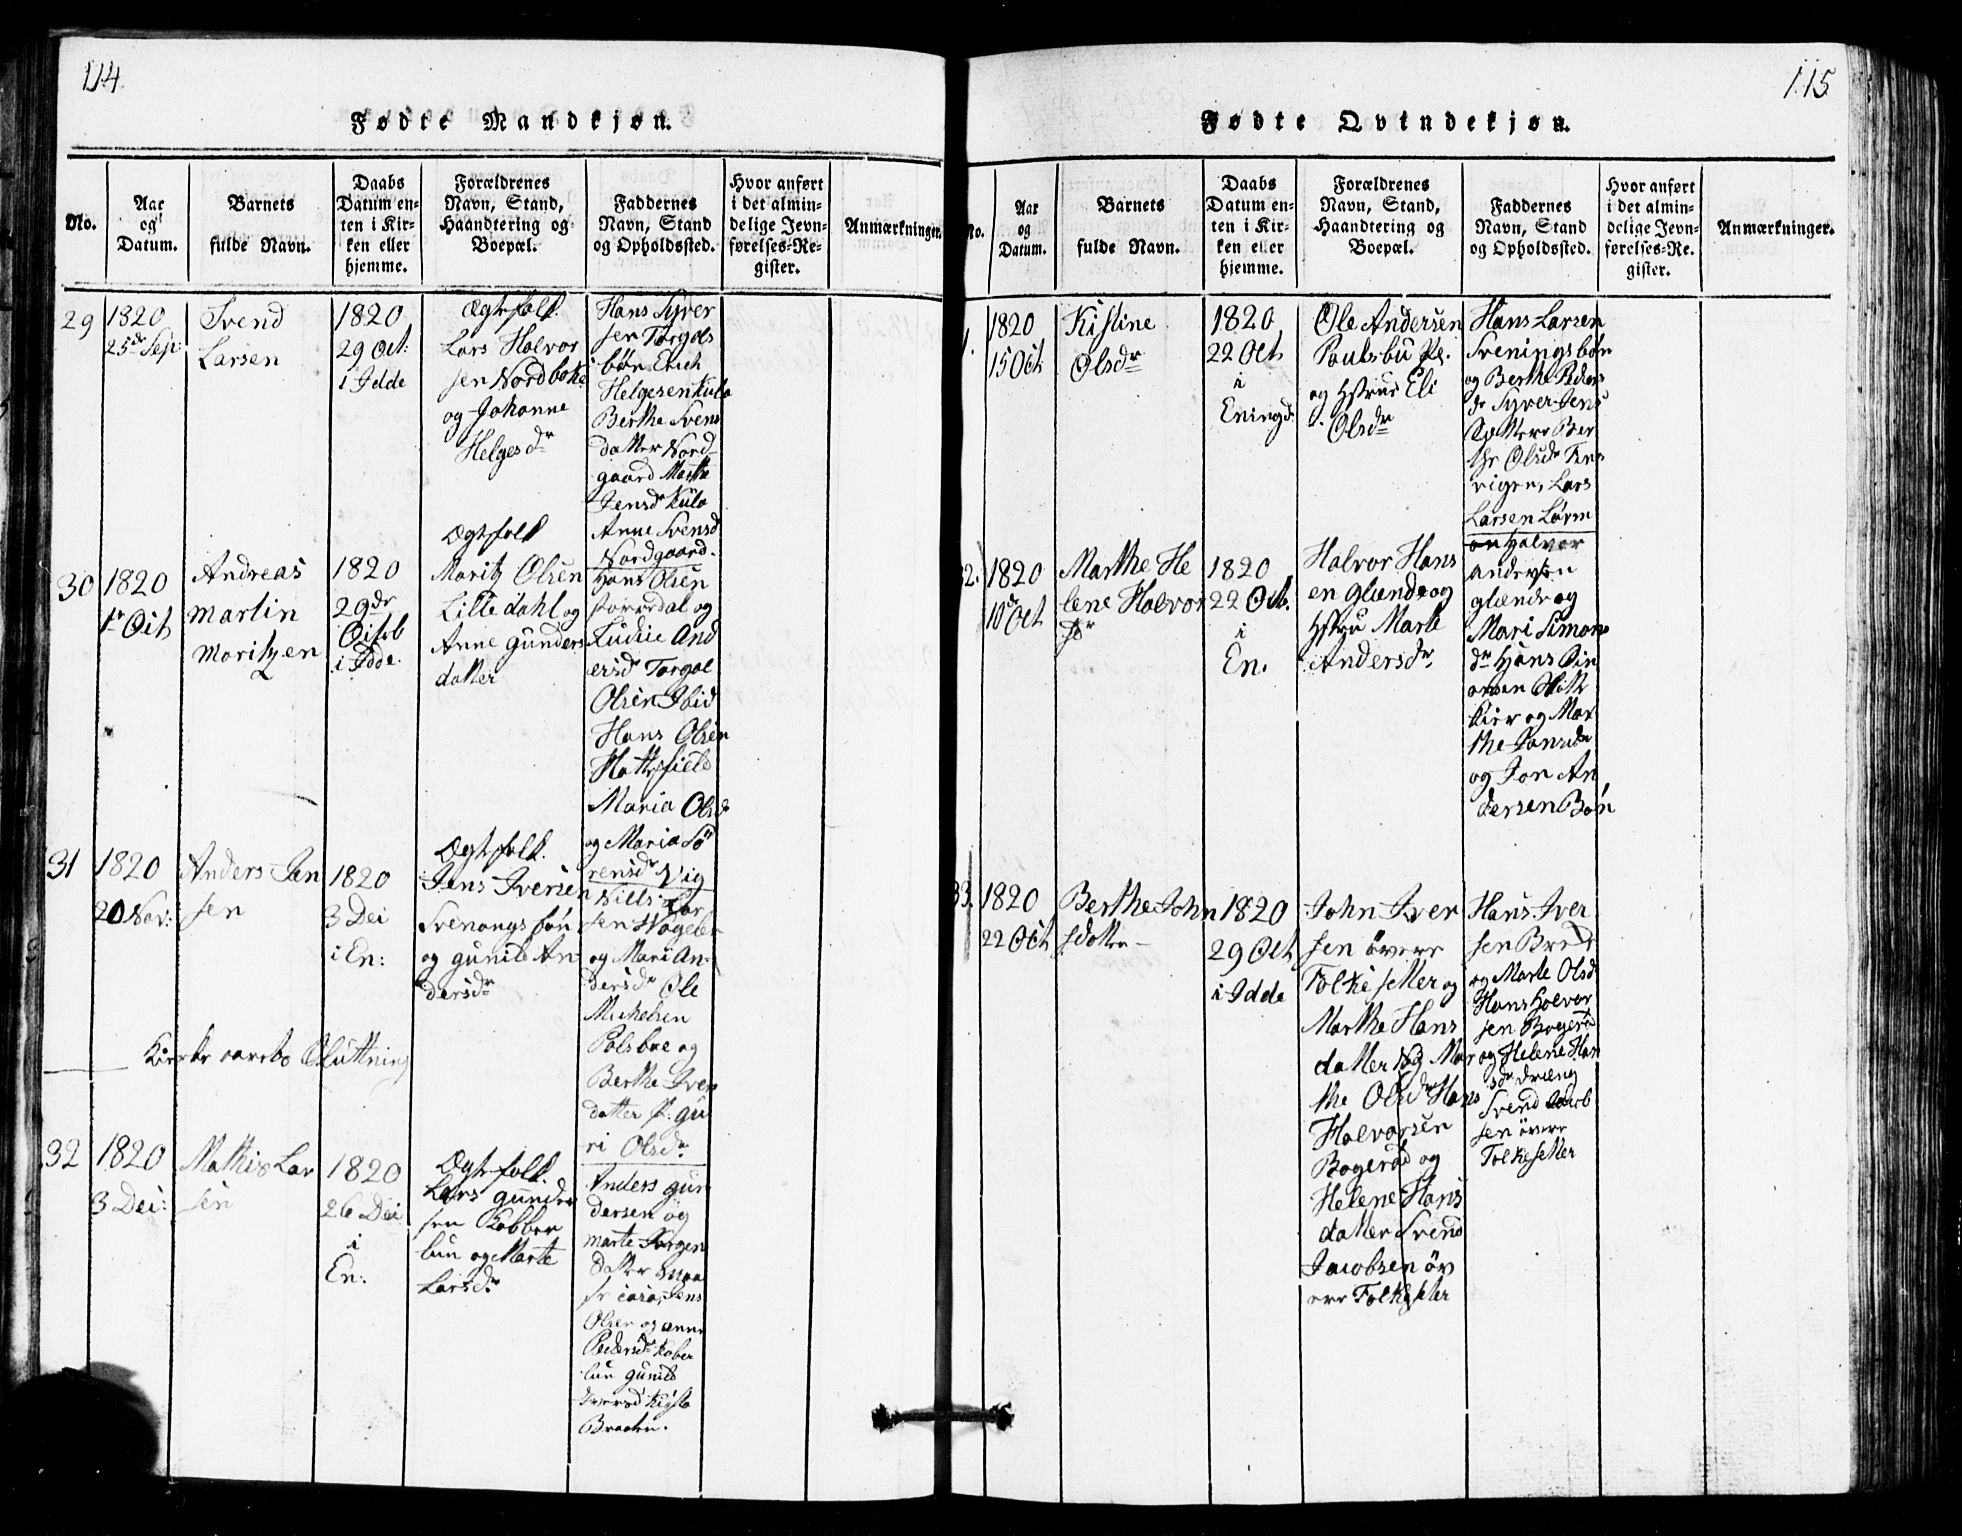 114.
Fødte Mandkjøn.
No.
Aar
og
Datum.
Barnets
fulde Navn.
Daabs
Datum en-
ten i Kir-
ken eller
hjemme.
Forældrenes
Navn, Stand,
Haandtering og
Boepæl.
Faddernes
Navn, Stand
og Opholdssted.
Hvor anført
i det almin-
delige Jevn-
førelses-Re-
gister.
Anmærkninger.
29
1820
25de Sep:
Svend
Larsen
1820
29 Oct:
i Idde
Ægtefolk
Lars Halvor
sen Nordbøke
og Johanne
Helgesdr
Hans Syver
sen Torgals
bøn Erich
Helgesen Kula
Berthe Svens
datter Nord
gaard Marthe
Jensdr Kula
Anne Svensd
Nordgaard.
30
1820
1r Oct
Andreas
Martin
Moritzen
1820
29dr
Octob
i Idde.
Ægtefolk
Moritz Olsen
Lilledahl og
Anne Gunders
datter
Hans Olsen
og
And
ersdr Torgal
Olsen Ibid
Hans Olsen
Maria Olsd
og Maria Sö
rensdr Vig
31
1820
20 Nov:
Anders Jen
sen
1820
3 Dec
i En:
Ægtefolk.
Jens Iversen
Svenongsbøn
og Gunild An
dersdr
Nills Lar
sen
og Mari An
dersdr Ole
Michelsen
Polsbue og
Berthe Iver
datter Gu
ri Olsdr
Kirke aarets Sluttning
32
1820
3 Dec:
Mathis Lar
sen
1820
26 Dec
i
En:
Ægtefolk.
Lars Gunder
sen Kobber
lun og Marte
Larsdr
Anders Gun
dersen og
Marte Jørgen
datter
Jens
Olsen og Anne
Pedersdr Kober
lun Gunild
Braaten.
115
Fødte Qvindekjøn.
No.
Aar
og
Datum.
Barnets
fulde Navn.
Daabs
Datum en-
ten i Kir-
ken eller
hjemme.
Forældrenes
Navn, Stand,
Haandtering og
Boepæl.
Faddernes
Navn, Stand
og Opholdssted.
Hvor anført
i det almin-
delige Jevn-
førelses-Re-
gister.
Anmærkninger.
1820
15 Oct
Kistine
Olsdr
1820
22 Oct
i
Eningd.
Ole Andersen
Poulsbu Pl.
og Hstrue Eli
Olsdr
Hans Larsen
Sveningsbøn
og Berthe Peders
dr Syver Jens
Ber
the Olsdr
Lars
Larsen
2.
1820
10de Oct
Marthe He
lene Halvor
sdr
1820
22 Octb.
i
En.
Halvor Hans
en Glænde og
Hstru Marte
Andersdr.
Halvor
Andersen
Glænde og
Mari Simons
dr Hans
og Mar
the Hansdr
og Jon An
dersen Bøn
33.
1820
22 Oct
Berthe John
sdatter
1820
29 Oct
i Idde
John Iver
sen övere
Folkesetter og
Marthe Hans
datter og Mar
the Olsdr Hans
Halvorsen
Bogerød og
Helene Hans
datter Svend
Jacobsen öv
ere Folkesetter
Hans Iver
sen
og Marte Olsd
Hans Halvor
sen Bogerød
og Helene Han
sdr
Svend Jacob
sen övere
Folkesetter